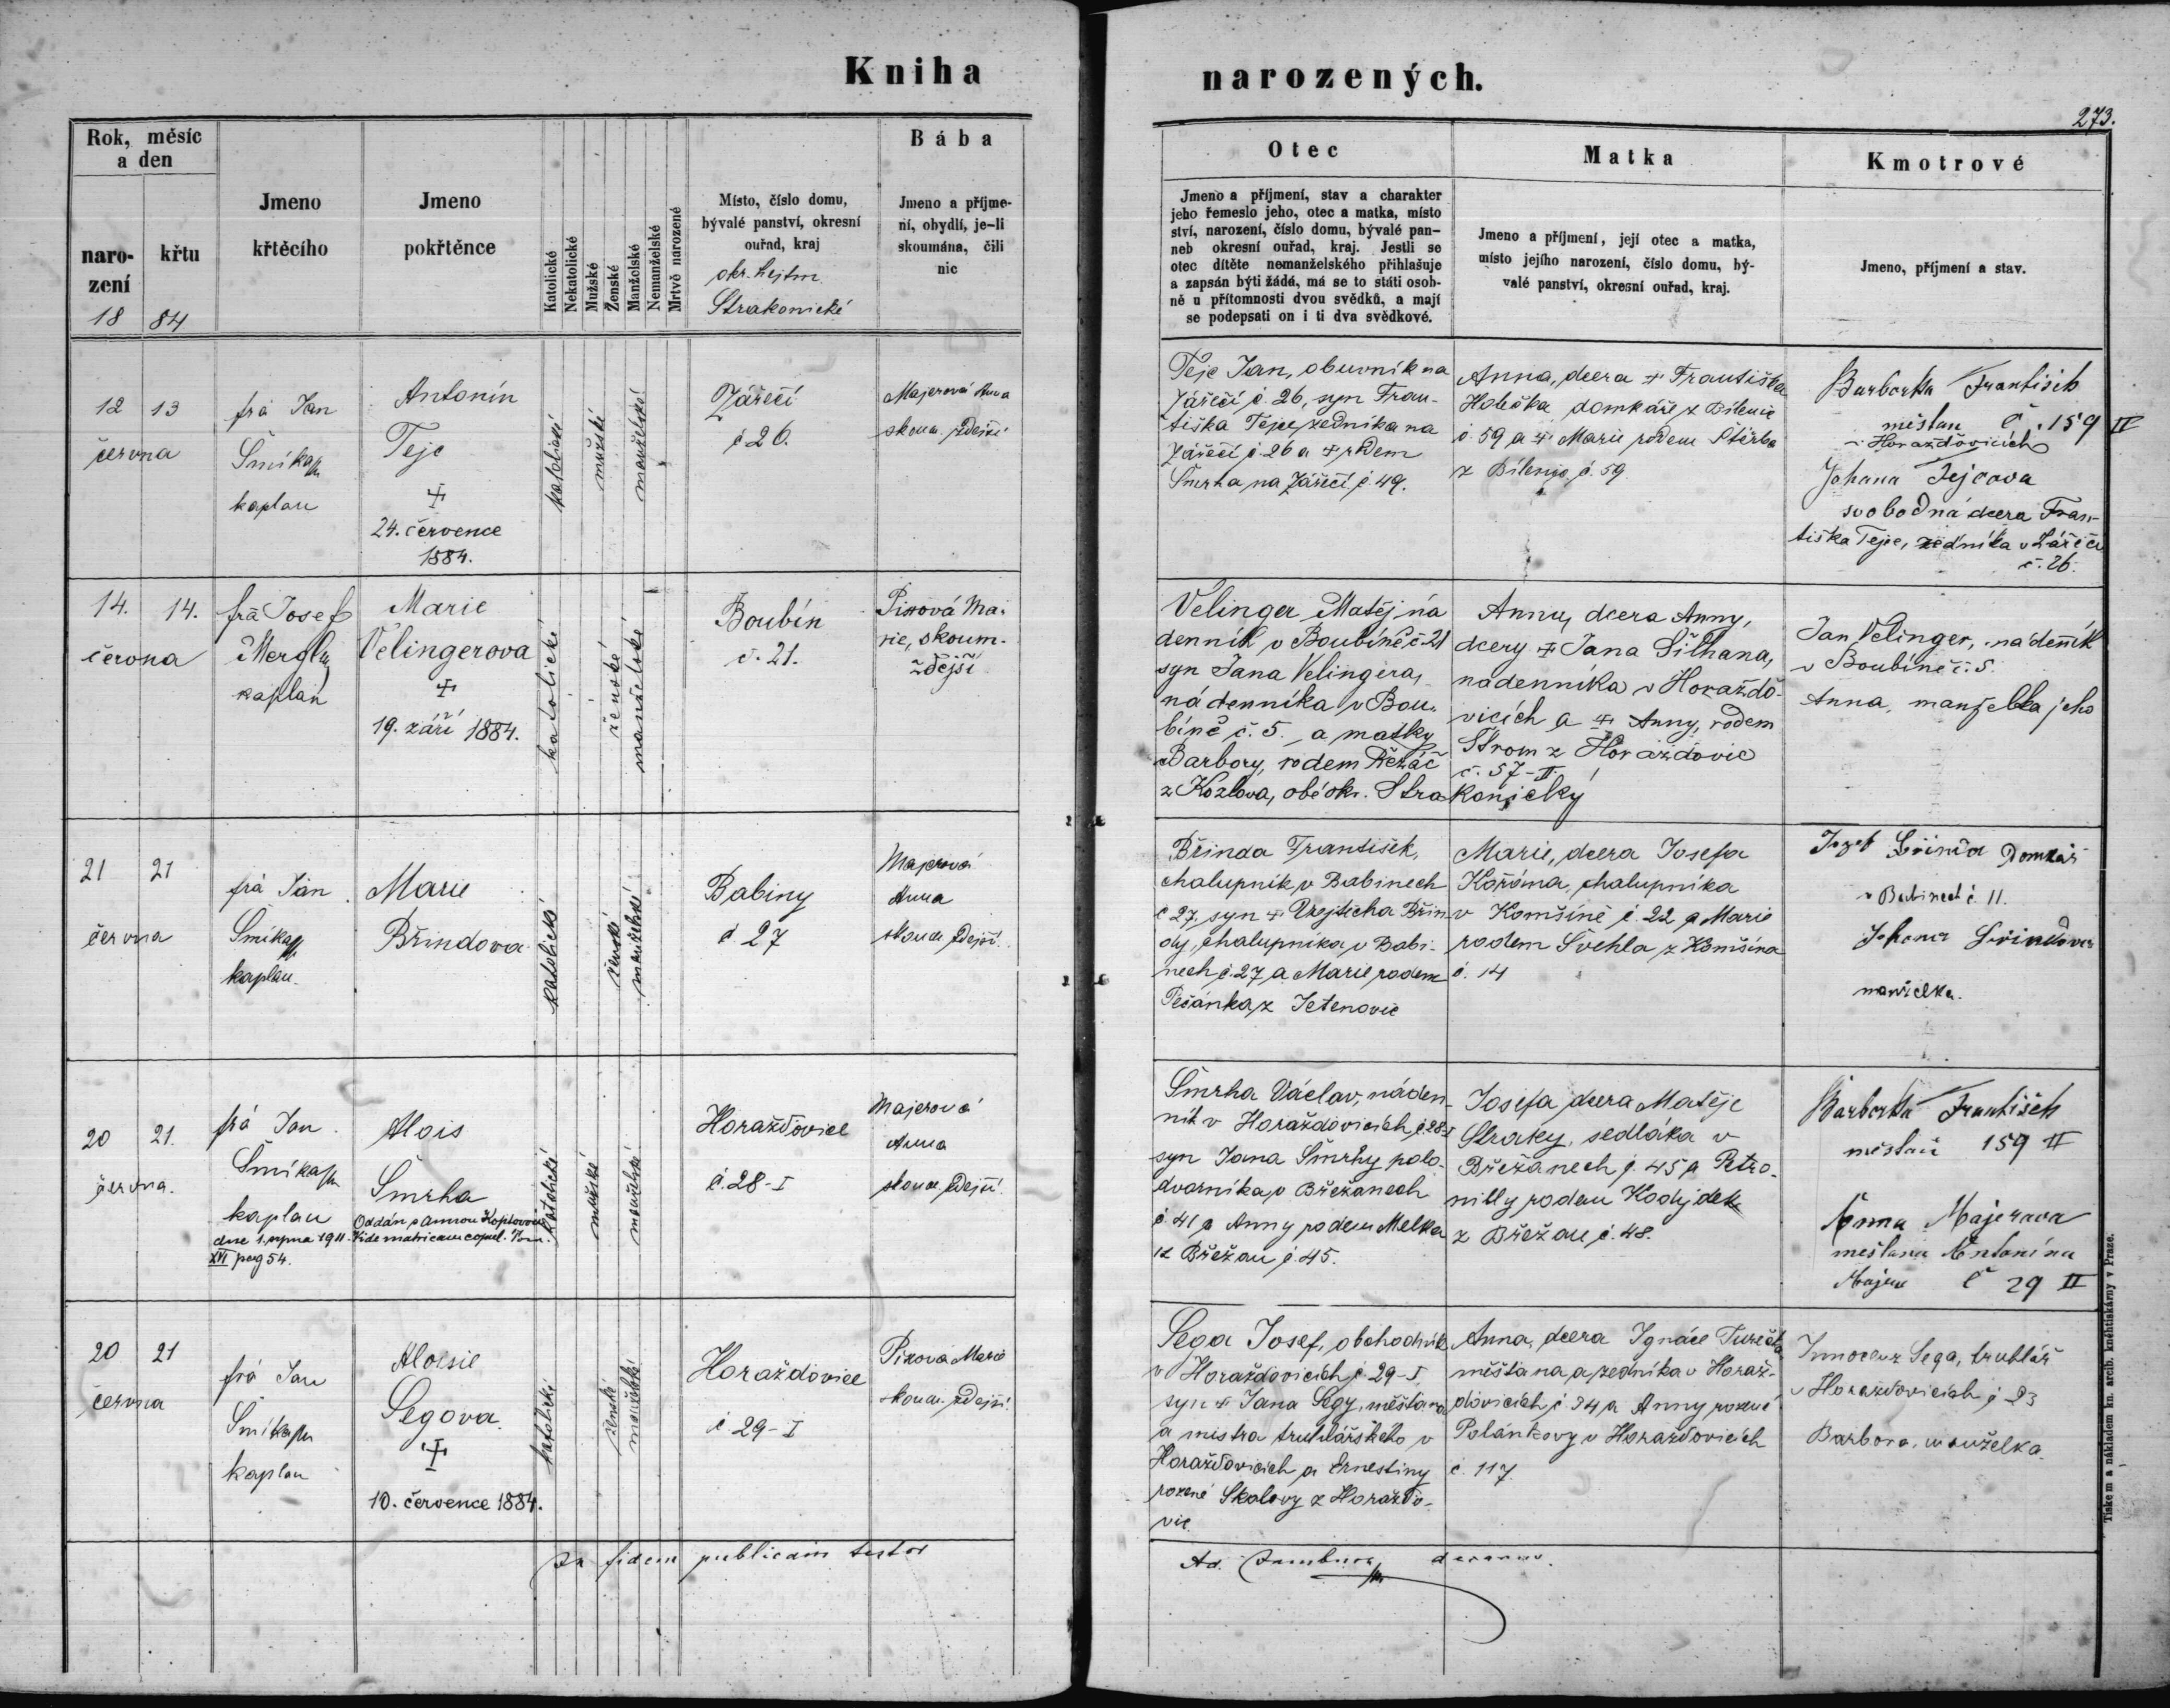 Kniha
narozených.
273.
Rok, měsíc
a den
naro-
zení
křtu
18 84
Jmeno
křtěcího
Jmeno
pokřtěnce
Katolické
Nekatolické
Mužské
Ženské
Manželské
Nemanželské
Mrtvě narozené
Místo, číslo domu,
bývalé panství, okresní
ouřad, kraj
okr. hejtm.
Strakonické
Bába
Jmeno a příjme-
ní, obydlí, je-li
skoumána, čili
nic
Otec
Jmeno a příjmení, stav a charakter
jeho řemeslo jeho, otec a matka, místo
ství, narození, číslo domu, bývalé pan-
neb okresní ouřad, kraj. Jestli se
otec dítěte nemanželského přihlašuje
a zapsán býti žádá, má se to státi osob-
ně u přítomnosti dvou svědků, a mají
se podepsati on i ti dva svědkové.
Matka
Jmeno a příjmení, její otec a matka,
místo jejího narození, číslo domu, bý-
valé panství, okresní ouřad, kraj.
Kmotrové
Jmeno, příjmení a stav.
12 13
června
frá Jan
Šmíka
kaplan
Antonín
Tejc
✝
24. července
1884.
katolické
mužské
manželské
Zářečí
č 26.
Majerová Anna
skoum. zdejší
Tejc Jan, obuvník na
Zářečí č. 26, syn Fran-
tiška Tejce, zedníka na
Zářečí č. 26 a ✝ rodem
Šmrha na Zářečí č. 49.
Anna, dcera ✝ Františka
domkáře z Bílenic
č. 59 a ✝ Marie rodem Štěrba
z Bílenic č. 59
Barborka František
měšťan č. 159 II
v Horažďovicích
Johana Tejcova
svobodná dcera Fran-
tiška Tejce, zedníka v Zářečí
č. 26.
14. 14.
června
frá Josef
kaplan
Marie
Velingerova
✝
19. září 1884.
katolické
ženské
manželské
Boubín
č. 21.
Pixová Ma-
rie, skoum.
zdejší
Velinger Matěj ná
denník v Boubíně č. 21
syn Jana Velingera,
nádenníka v Bou-
bíně č. 5. a matky
Barbory, rodem Řezáč
z Kozlova, obé okr. Stra
Anna, dcera Anny,
dcery ✝ Jana Šilhana,
nádenníka v Horažďo-
vicích a ✝ Anny, rodem
Štrom z Horažďovic
č. 57-II.
konický
Jan Velinger, nádenník
v Boubíně č. 5.
Anna, manželka jeho
21 21
června
frá Jan
Šmíka
kaplan.
Marie
Břindova
katolické
ženské
manželské
Babiny
č. 27
Majerová
Anna
skoum. zdejší.
Břinda František,
chalupník v Babinech
č 27. syn ✝ Vojtěcha Břin
dy, chalupníka v Babi-
nech č. 27 a Marie rodem
Pešánka z Jetenovic
Marie, dcera Josefa
Kořána, chalupníka
v Komšíně č. 22 a Marie
rodem Švehla z Komšína
č. 14
Jozef Břinda Domkář
v Babinech č 11.
Johana Břindova
manželka.
20 21.
června.
frá Jan
Šmíka
kaplan
Alois
Šmrha
Oddán s Annou Koptovou
dne 1. srpna 1911. Vide matricam copul. Tom.
XVI pag 54.
katolické
mužské
manželské
Horažďovice
č. 28-I
Majerová
Anna
skoum. zdejší.
Šmrha Václav, náden-
ník v Horažďovicích č. 28-I
syn Jana Šmrhy polo-
dvorníka v Břežanech
č. 41 a Anny rodem Melka
z Břežan č. 45.
Josefa dcera Matěje
Straky, sedláka v
Břežanech č. 45 a Petro-
nilly rodem Hodejdek
z Břežan č. 48.
Barborka František
měšťan 159 II
Anna Majerova
měštana Antonína
Majera č 29 II
20 21
června
frá Jan
Šmíka
kaplan
Aloisie
Segova
✝
10. července 1884.
katolické
ženské
manželské
Horažďovice
č 29-I
Pixova Marie
skoum. zdejší.
Sega Josef, obchodník
v Horažďovicích č. 29-I
syn ✝ Jana Segy, měštana
a mistra truhlářského v
Horažďovicích a Ernestiny
rozené Skalovy z Horažďo-
vic.
Anna, dcera Ignáce Turečka
měštana a zedníka v Horaž-
ďovicích č 34 a Anny rozené
Polánkovy v Horažďovicích
č. 117
Innocenz Sega, truhlář
v Horažďovicích č 23
Barbora, manželka.
In fidem publicam testor
Ad.
Tiskem a nákladem kn. arcib. knihtiskárny v Praze.